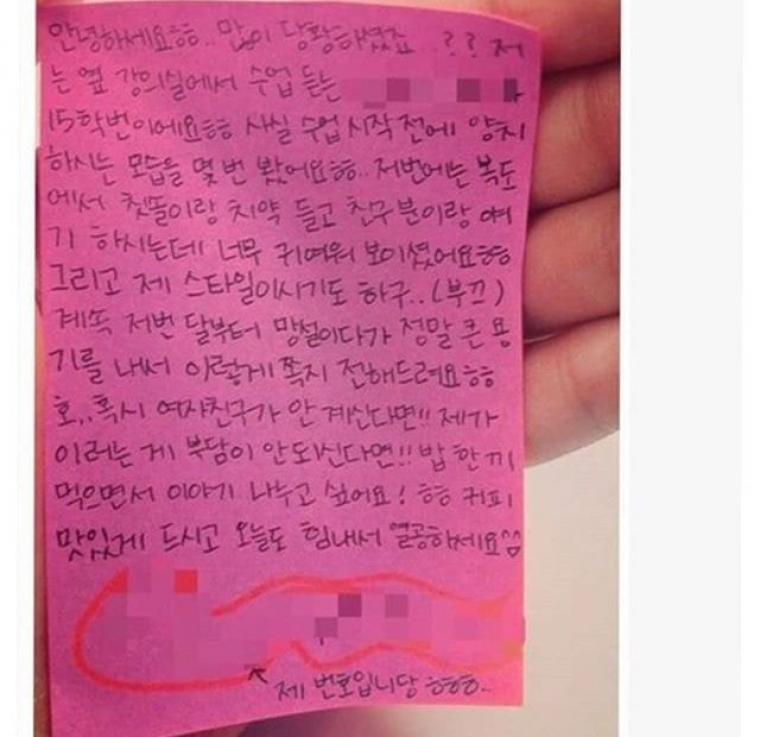 안녕하세요ㅎㅎ.. 많이 당황하셨죠..?? 저
는 옆 강의실에서 수업 듣는
15학번이에요ㅎㅎ 사실 수업 시작 전에 양치
하시는 모습을 몇 번 봤어요ㅎㅎ.. 저번에는 복도
에서 칫똘이랑 치약 들고 친구분이랑 얘
기 하시는데 너무 귀여워 보이셨어요ㅎㅎ
그리고 제 스타일이시기도 하구..(부끄)
계속 저번 달부터 망설이다가 정말 큰 용
기를 내서 이렇게 쪽지 전해드려요ㅎㅎ
호,,혹시 여자친구가 안 계신다면!! 제가
이러는 게 부담이 안되신다면!! 밥 한 끼
먹으면서 이야기 나누고 싶어요! ㅎㅎ 커피
맛있게 드시고 오늘도 힘내서 열공하세요^^
제 번호입니당 ㅎㅎㅎ..